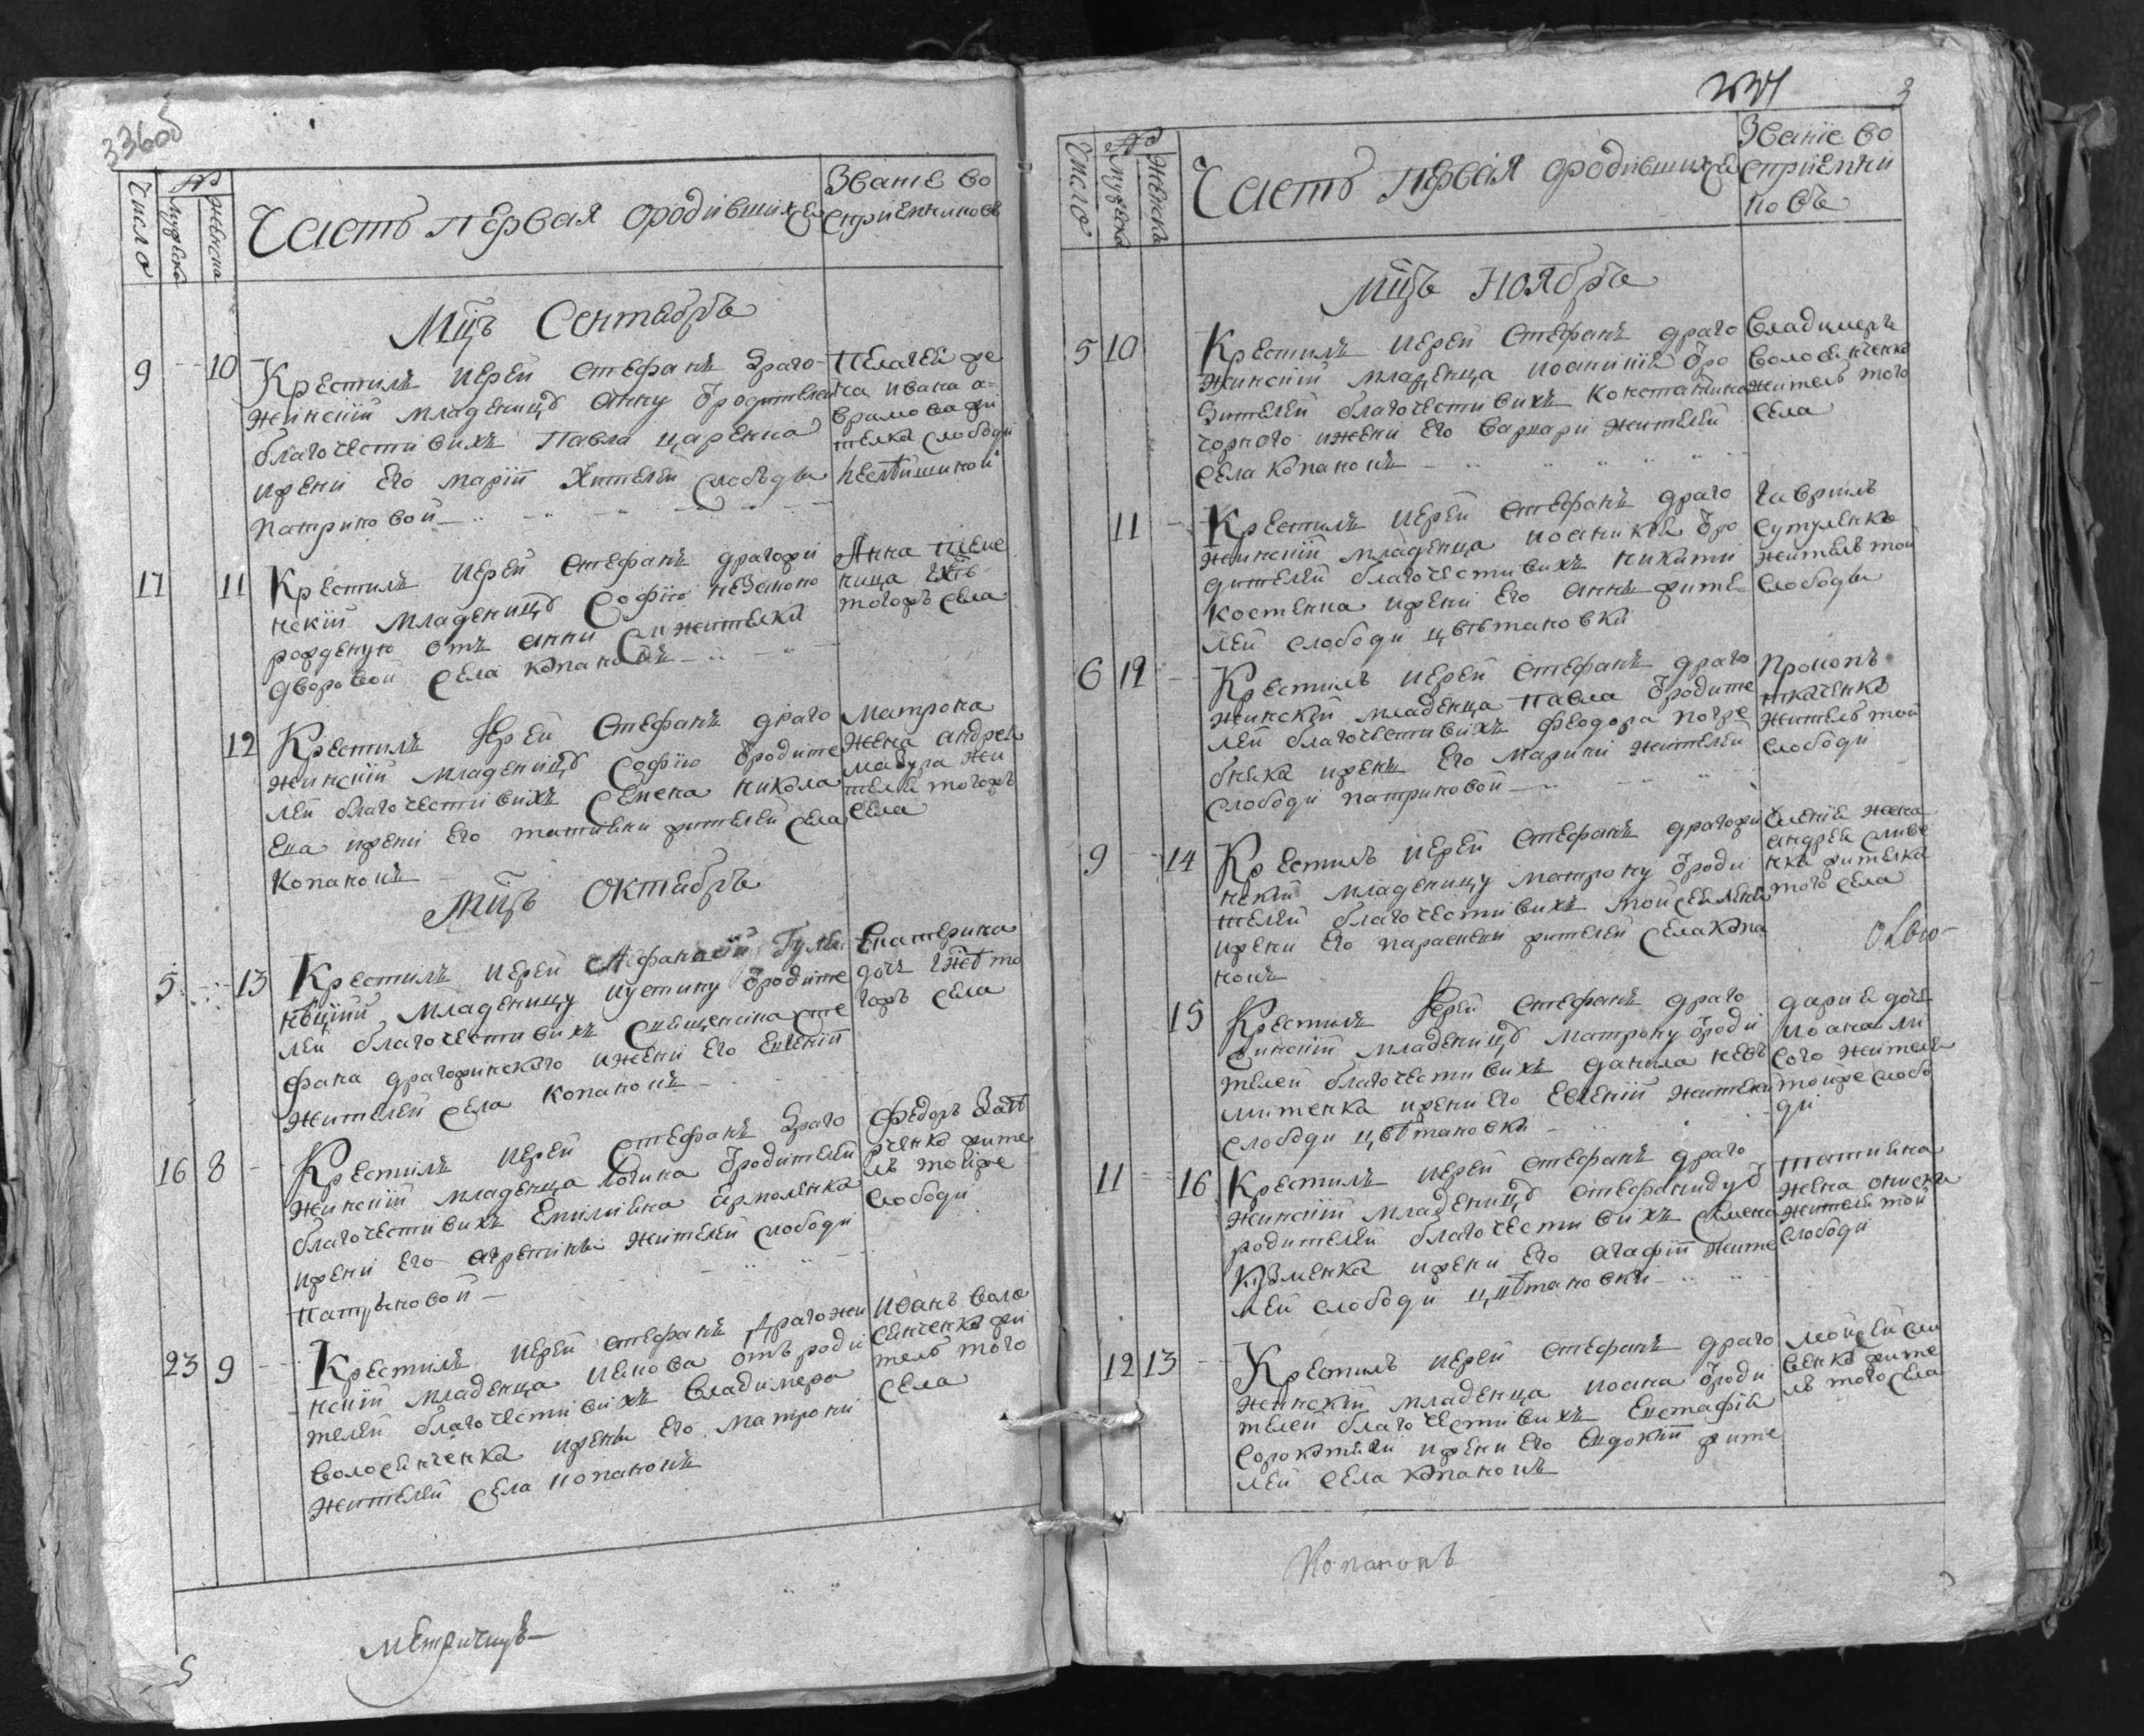 336об
Число
№
Мужеска
Женска
Часть первая ородившихся
Звание во
сприемниковъ
Мцъ Сентябрь
9 10 Крестилъ иерей Стефанъ Драго
жинский младеницу Анну ѿродителей
благочестивихъ Павла Царенка
ижени его Марии жителей слободы
Патриковой
Пелагея же
на Ивана а=
врамова жи
телка слободи
17 11 Крестилъ иерей Стефанъ Драгожи
нский младеницу Софию незаконо
рожденую отъ Анни жителки
дворовой села Копанокъ
Анна
тогожъ села
12 Крестилъ иерей Стефанъ Драго
жинский младеницу Софию ѿродите
лей благочестивихъ Семена Никола
ена ижени его Татияни жителей села
Копанокъ
Матрона
жена Андрея
Мазура жи
теля тогожъ
села
Мцъ Октябрь
5 13 Крестилъ иерей Афанасий
младеницу Иустину ѿродите
лей благочестивихъ священика Сте
фана Драгожинского ижени его Евгении
жителей села Копанокъ
Екатерина
дочь
гожъ села
16 8 Крестилъ иерей Стефанъ Драго
жинский младенца Логина ѿродителей
благочестивихъ Емилияна Ермоленка
ижени его Агрепины жителей слободи
Патриковой
Федоръ
рченко жите
ль тойже
слободи
23 9 Крестилъ иерей Стефанъ Драгожи
нский младенца Иякова отъ роди
телей благочестивихъ Владимера
Волосянченка ижены его Матрони
жителей села Копанокъ
Иванъ Воло
сянченко жи
тель того
села
Метричнъ
5
3
Число
№
Мужеска
Женска
Часть первая ородившихся
Звание во
сприемни
ковъ
Мцъ Ноябрь
5 10 Крестилъ иерей Стефанъ Драго
жинский младенца Иоаникия ѿро
дителей благочестивихъ Константина
Чорного ижени его Варвари жителей
села Копанокъ
Владимеръ
Волосянченко
житель того
села
11 Крестилъ иерей Стефанъ Драго
жинский младенца Иоаникия ѿро
дителей благочестивихъ Никити
Костенка ижени его Анни жите
лей слободи Цветановки
Гаврилъ
Сутуленко
житель той
слободы
6 12 Крестилъ иерей Стефанъ Драго
жинский младенца Павла ѿродите
лей благочестивихъ Феодора Погре
бняка ижени его Марини жителей
слободи Патриковой
Прокопъ
Ткаченко
житель той
слободи
9 14 Крестилъ иерей Стефанъ Драгожи
нский младеницу Матрону ѿроди
телей благочестивихъ
ижени его Параскеви жителей села Копа
нокъ
жена
Андрея Сливе
нка жителка
того села
15 Крестилъ иерей Стефанъ Драго
жинский младеницу Матрону ѿроди
телей благочестивихъ Данила
ижени его Евгении жителей
слободи Цветановки
Дария дочь
Иоана Ли
сого жителя
тойже слобо
ди
11 16 Крестилъ иерей Стефанъ Драго
жинский младеницу Стефаниду ѿ
родителей благочестивихъ Семена
Кузменка ижени его Агафии жите
лей слободи Цветановки
Татияна
жена
жителя той
слободи
12 13 Крестилъ иерей Стефанъ Драго
жинский младенца Иоана ѿроди
телей благочестивихъ Евстафия
Сорокатяги ижени его Евдокии жите
лей села Копанокъ
Мойсей Сли
венко жите
ль того села
Копанокъ